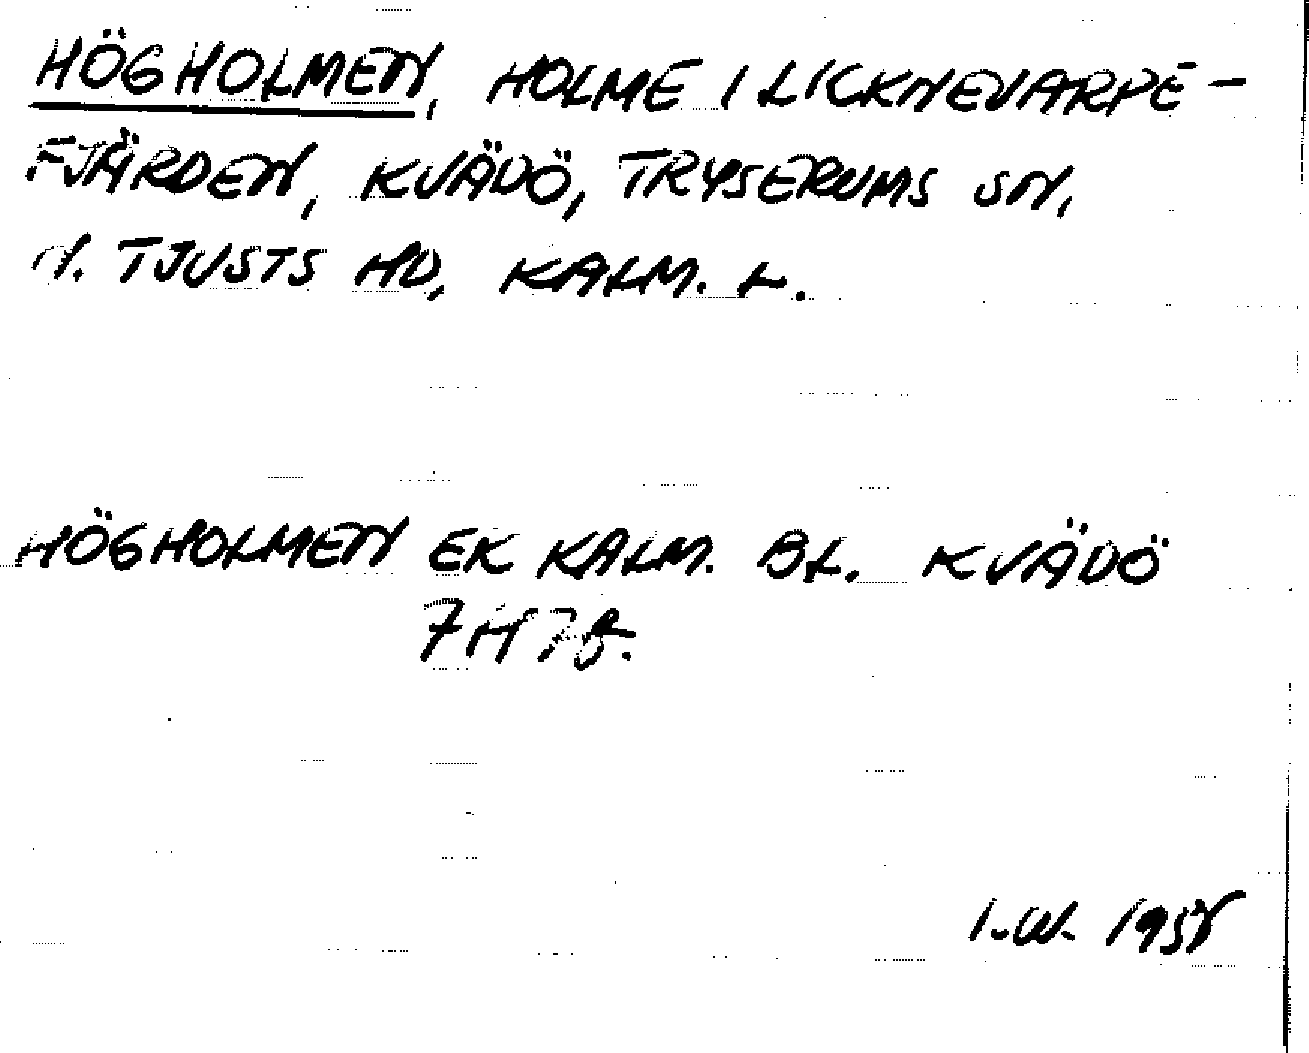 HÖGHOLMEN, HOLME I LICKNEVARPE-
FJÄRDEN, KVÄDÖ, TRYSERUMS SN,
N. TJUSTS HD, KALM. L.
HÖGHOLMEN EK KALM. BL. KVÄDÖ
7H7B.
I.W.